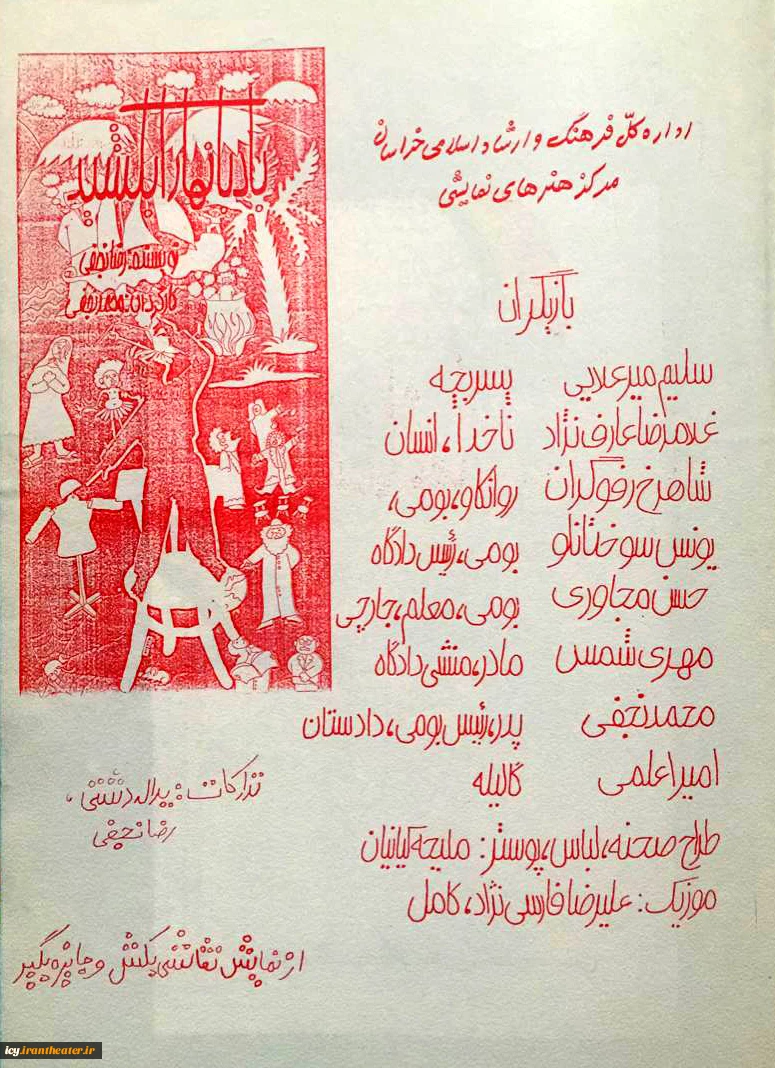 اداره کلّ فرهنگ و ارشاد اسلامی خراسان
مرکز هنرهای نمایشی
بادبانها را بکشید
نویسنده: رضا نجفی
کارگردان: محمد نجفی
بازیگران
سلیم میرعلایی پسربچه
غلامرضا عارف نژاد ناخدا، انسان
شاهرخ رفوگران روانکاو، بومی،
یونس سوختانلو بومی، رئیس دادگاه
حسن مجاوری بومی، معلم، جارچی
مهری شمس مادر، منشی دادگاه
محمد نجفی پدر، رئیس بومی، دادستان
امیر اعلمی گالیله
طراح صحنه، لباس، پوستر: ملیحه کیانیان
موزیک: علیرضا فارسی نژاد، کامل
تدارکات: یداله دشتی،
رضا نجفی
از نمایش نقاشی بکش و جایزه بگیر
icy.irantheater.ir